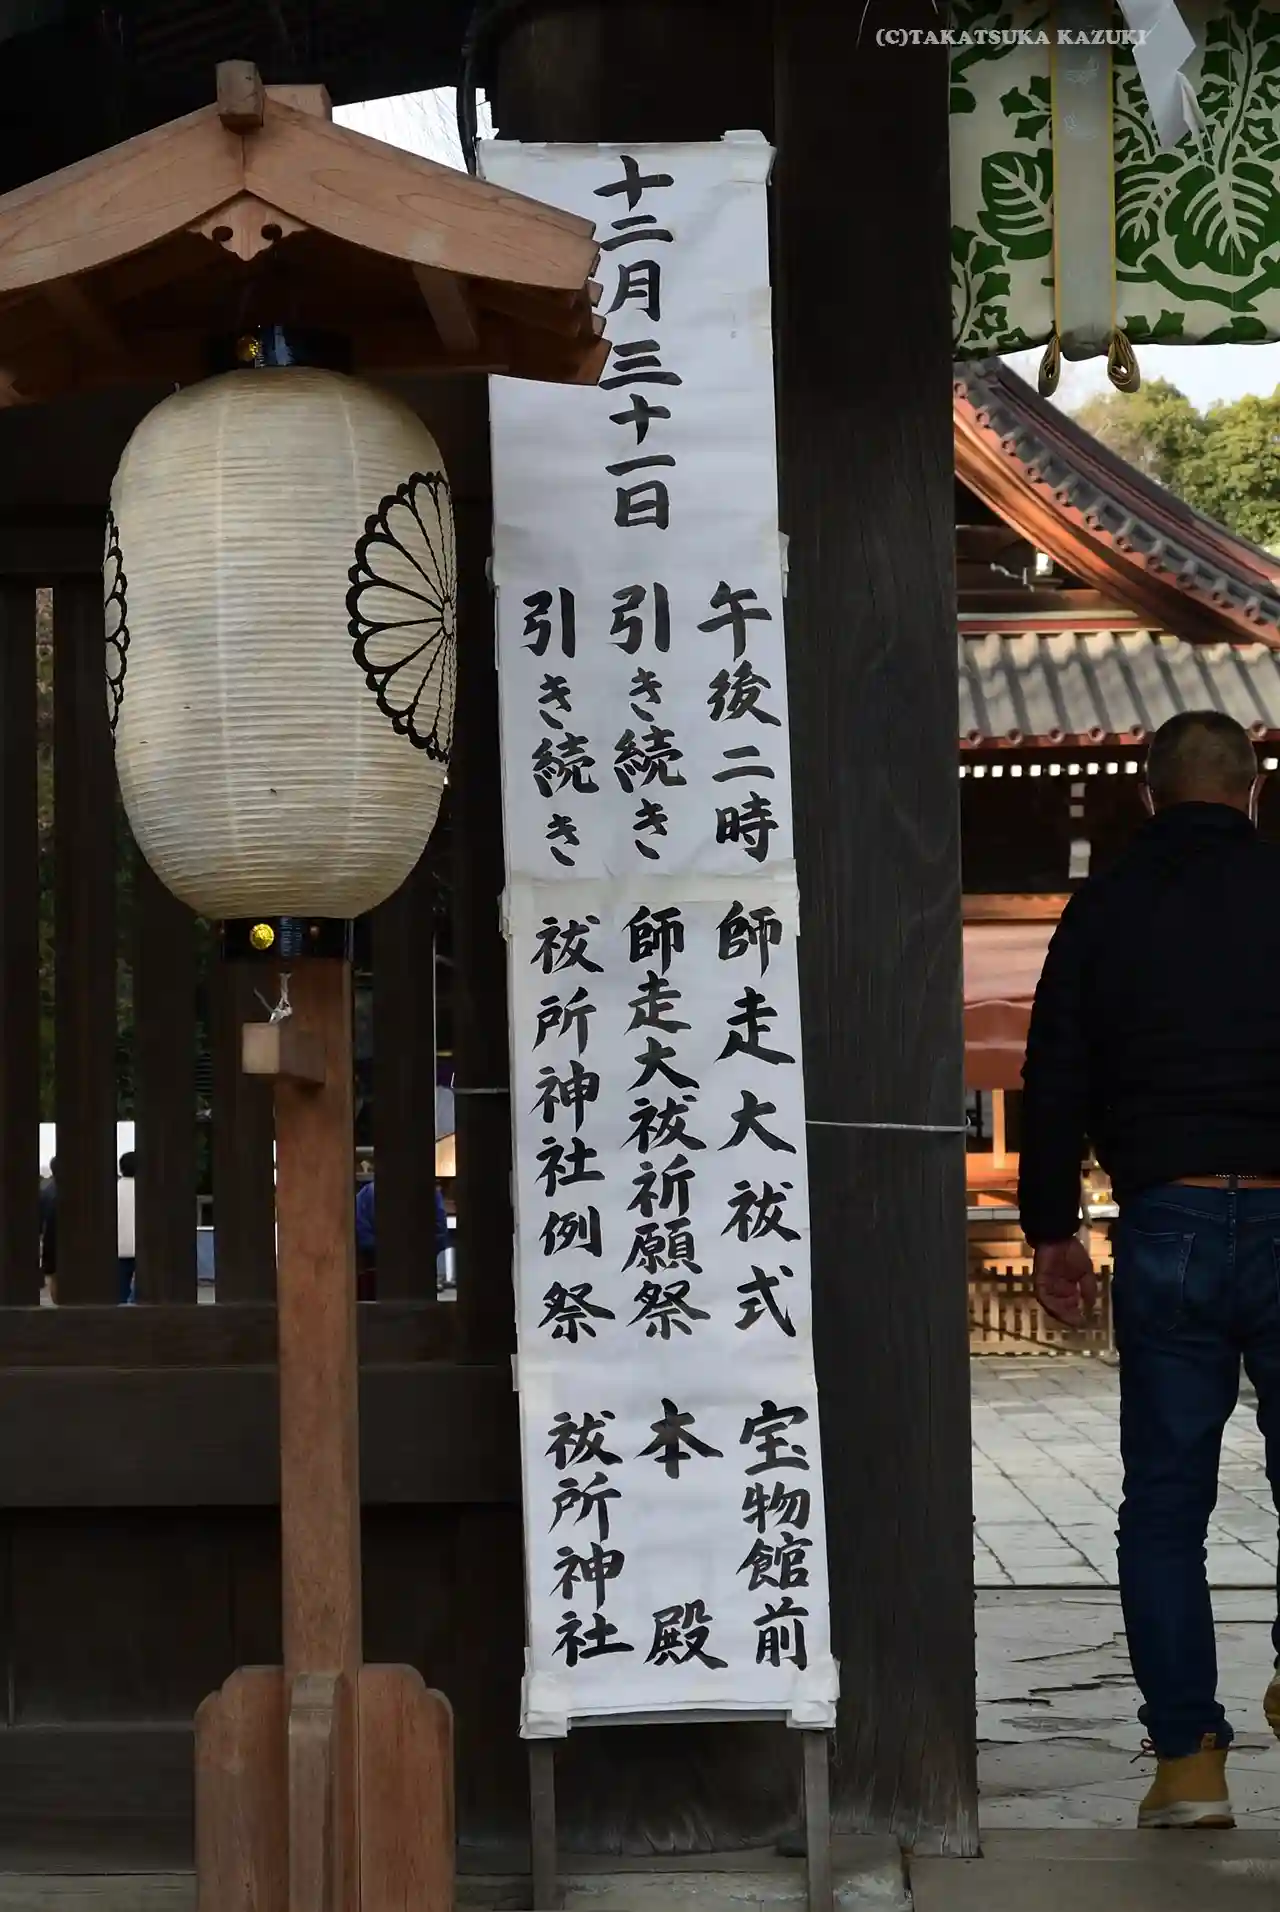 (C)TAKATSUKA KAZUKI
十二月三十一日
午後二時 師走大祓式 宝物館前
引き続き 師走大祓祈願祭 本殿
引き続き 祓所神社例祭 祓所神社